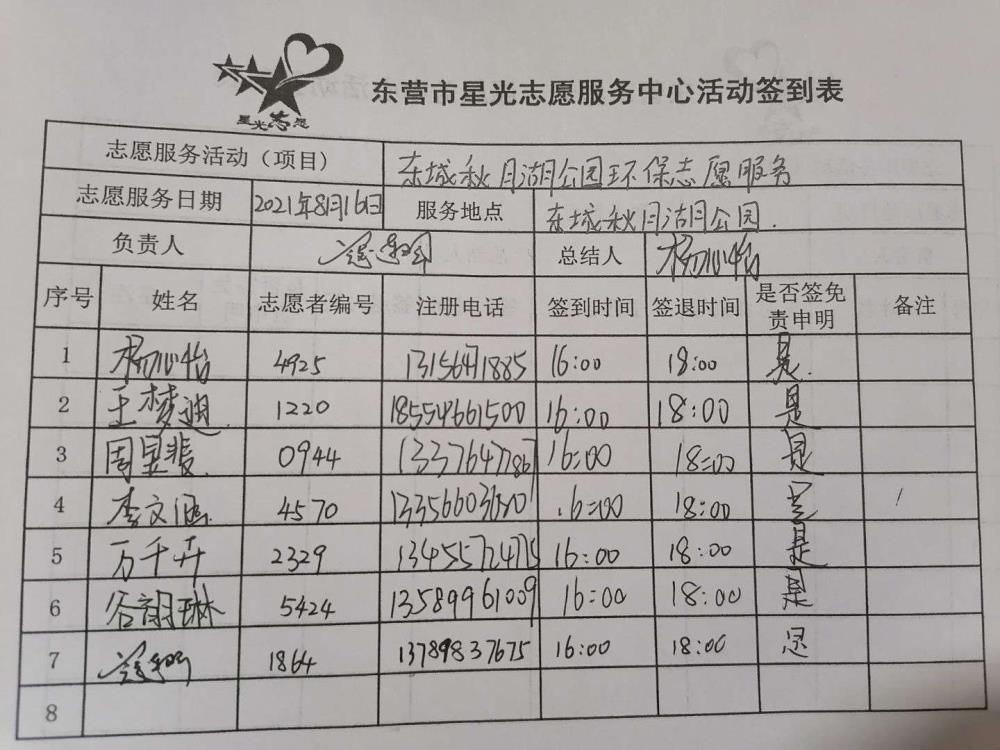 星光志愿
东营市星光志愿服务中心活动签到表
志愿服务活动（项目） 东城秋月湖公园环保志愿服务
志愿服务日期 2021年8月16日 服务地点 东城秋月湖公园.
负责人 总结人 杨心怡
序号 姓名 志愿者编号 注册电话 签到时间 签退时间 是否签免责申明 备注
1 杨心怡 4925 13156471885 16:00 18:00 是
2 王梦迪 1220 18554661500 16:00 18:00 是
3 0944 13376477867 16:00 18:00 是
4 李文涵 4570 16:00 18:00 是
5 万千卉 2329 13455572475 16:00 18:00 是
6 谷翊琳 5424 13589961009 16:00 18:00 是
7 1864 13789837675 16:00 18:00 是
8